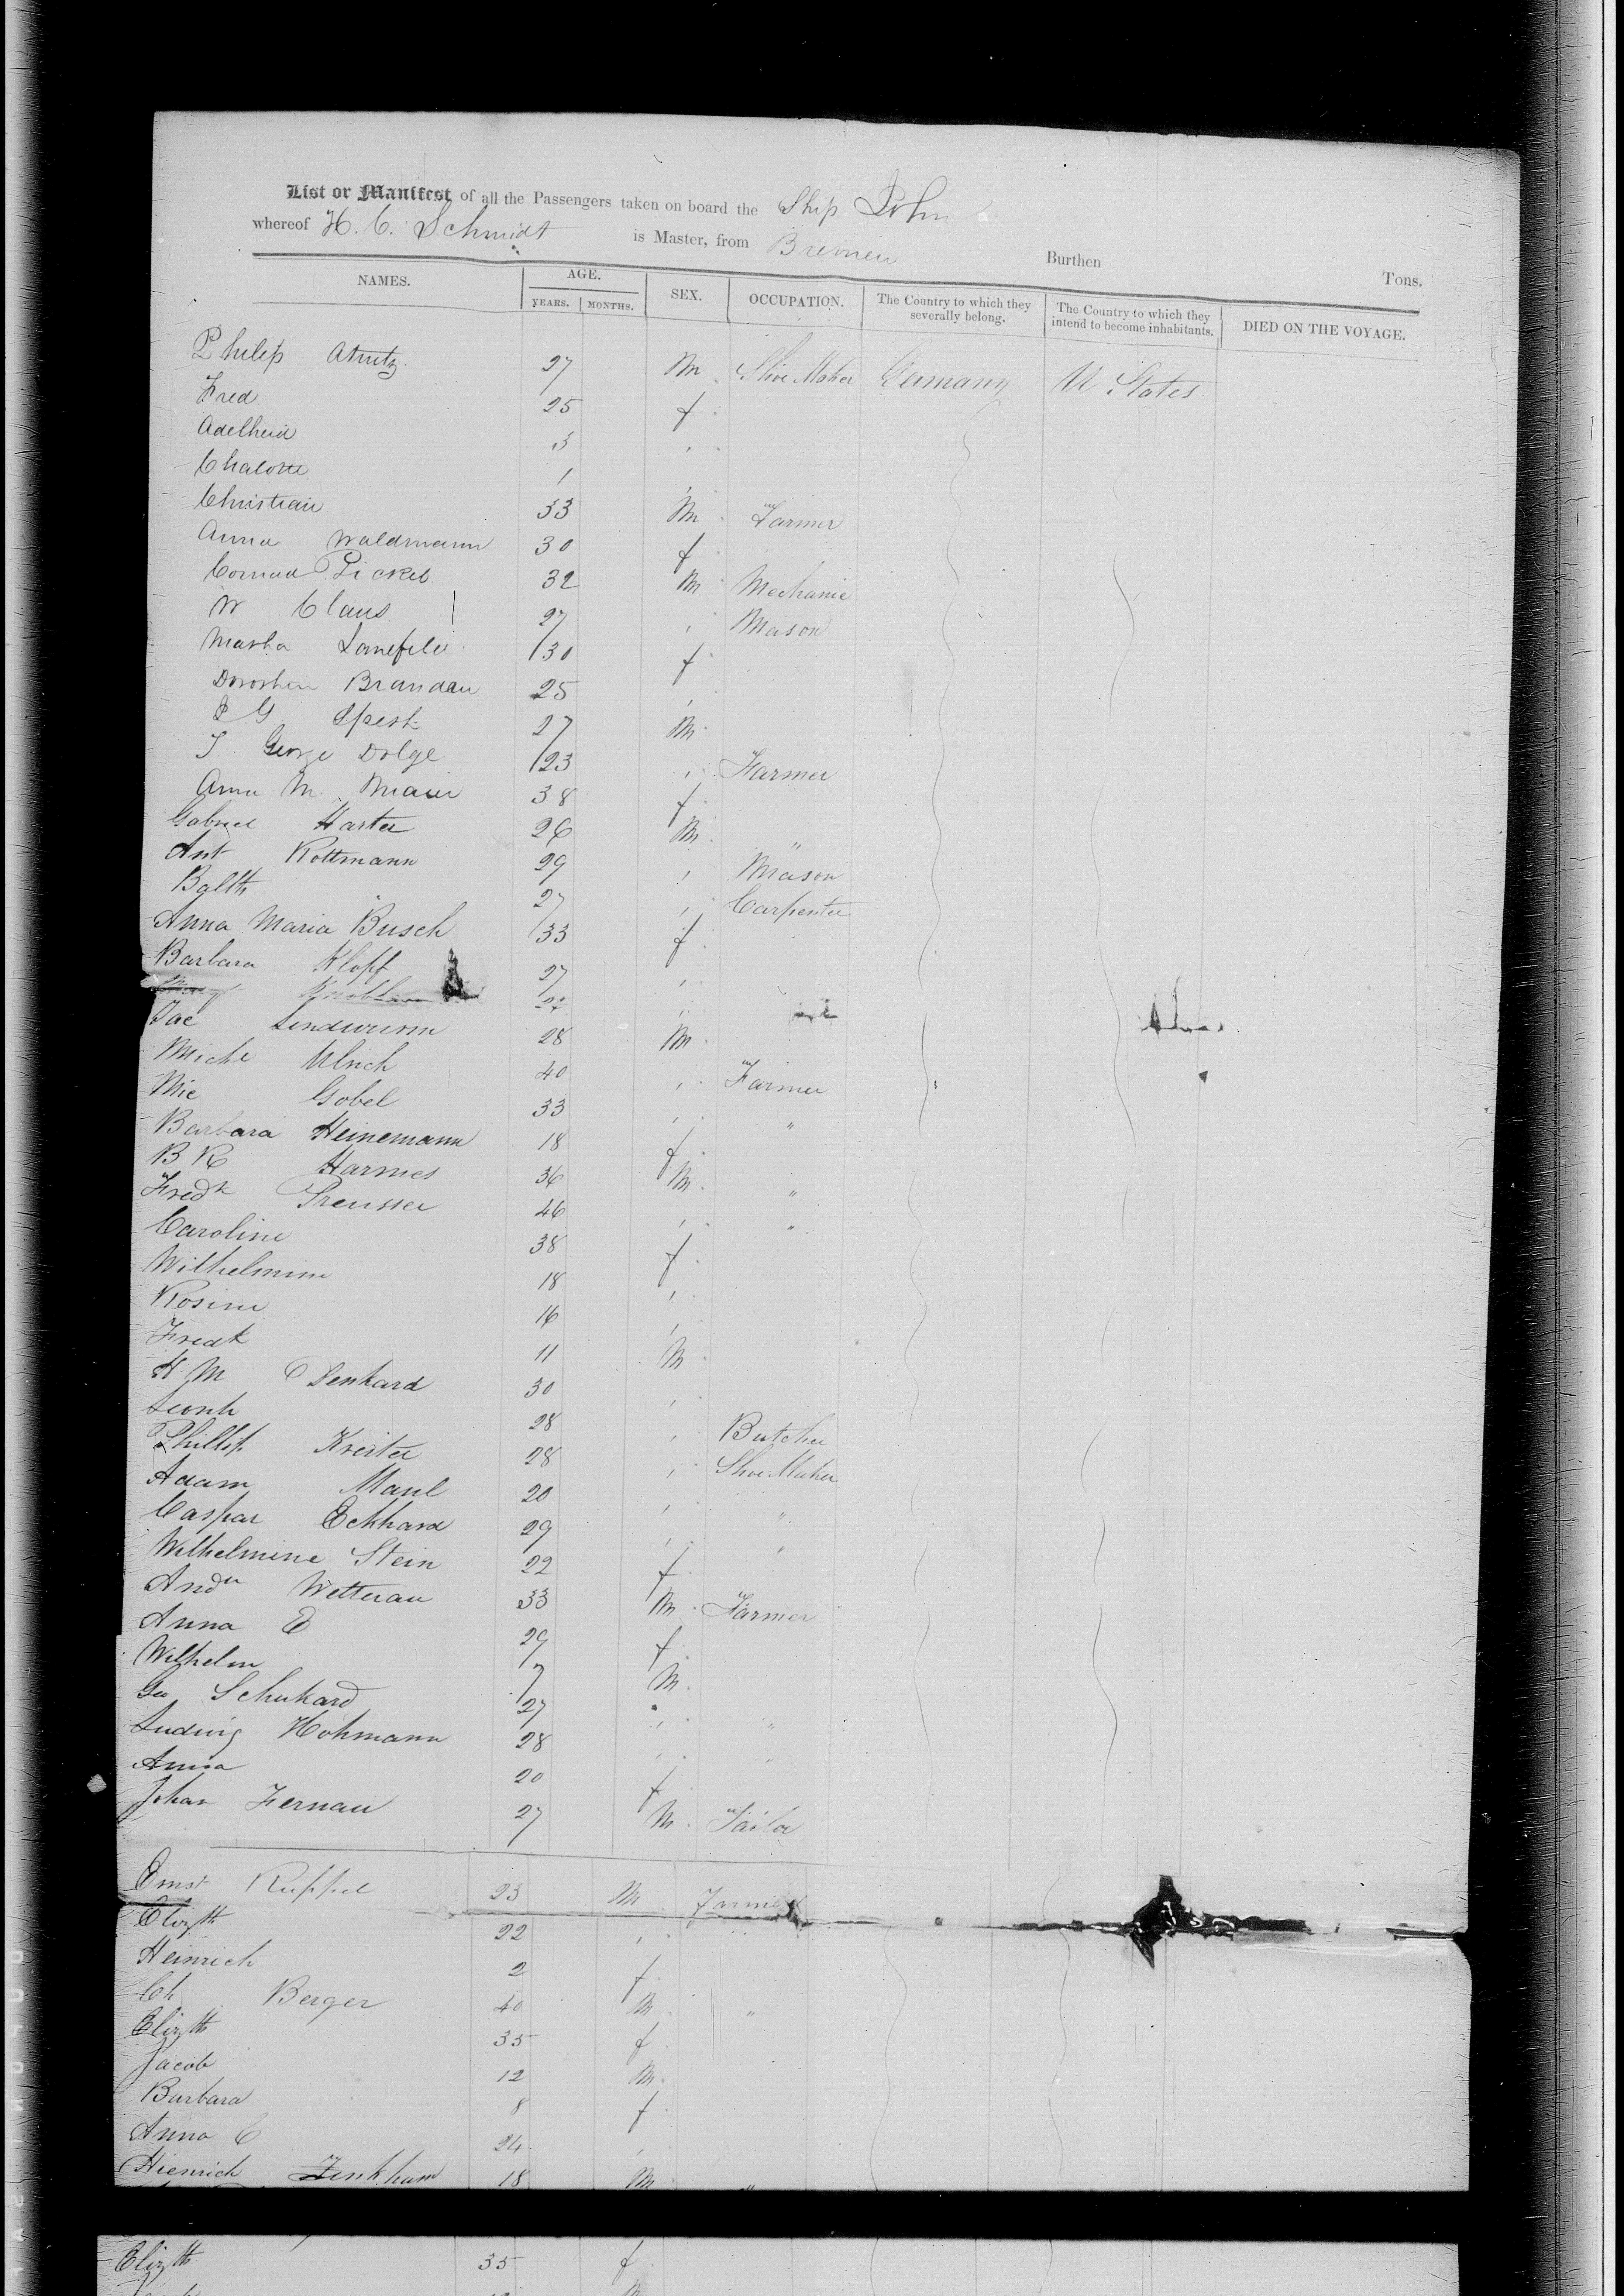 List or Manifest of all the Passengers taken on board the Ship John
whereof H. C. Schmidt is Master, from Bremen Burthen Tons.
NAMES. AGE. YEARS. MONTHS. SEX. OCCUPATION. The Country to which they severally belong. The Country to which they intend to become inhabitants. DIED ON THE VOYAGE.
Philip 27 M Shoe Maker Germany U States
Fred 25 f
Adelheid 3 "
Chalotte 1 "
Christian 33 M Farmer
Anna Waldmann 30 f
Conrad Pickel 32 M Mechanic
W Claus 27 " Mason
Martha 30 f
Dorothea Brandau 25 "
G 27 M
J George Dolge 23 " Farmer
Anna M Maier 38 f
Gabriel Harter 26 M "
Ant Rottmann 29 " Mason
Balth " 27 " Carpenter
Anna Maria Busch 33 f
Barbara Klopf 27 "
22 "
Jac Lindwurm 28 M
Miche Ulrich 40 " Farmer
Mic Gobel 33 " "
Barbara Heinemann 18 f
B R Harmes 36 M "
Fredk Preusser 46 " "
Caroline 38 f
Wilhelmine 18 "
Rosine 16 "
Fredk 11 M
H M Denhard 30 "
28 " Butcher
Phillip Kreiter 28 " Shoe Maker
Adam Maul 20 " "
Caspar Eckhard 29 " "
Wilhelmine Stein 22 f
Andr Wetterau 33 M Farmer
Anna E 29 f
Wilhelm 7 M
Geo Schuhard 27 " "
Ludwig Hohmann 28 " "
Anna 20 f
Johan Fernau 27 M Tailor
Ernst Ruppel 23 M Farmer
Elizth 22 "
Heinrich 2 f
Ch Berger 40 M "
Elizth 35 f
Jacob 12 M
Barbara 8 f
Anna C 24 "
Hienrich Zinkham 18 M "
Elizth 35 f